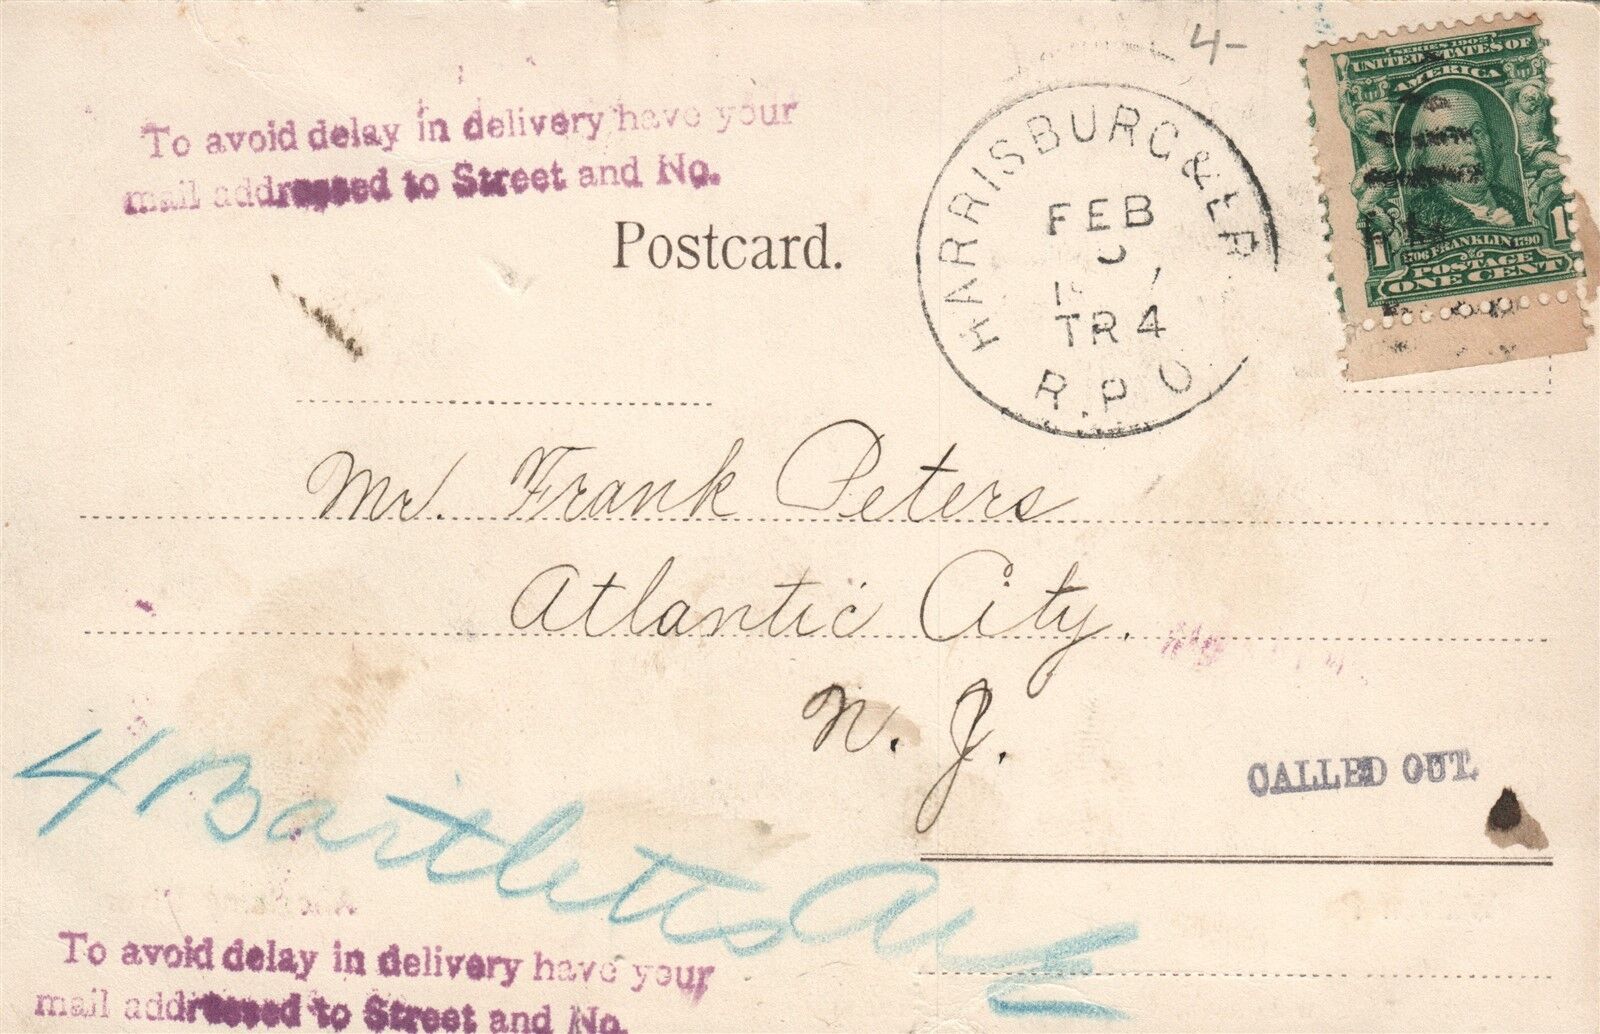 4-
To avoid delay in delivery have your
mail addressed to Street and No.
Postcard.
HARRISBURG &
FEB
TR 4
R.P.O
SERIES 1902
UNITED STATES OF
AMERICA
1 1
1706 FRANKLIN 1790
POSTAGE
ONE CENT
Mr. Frank Peters
Atlantic City.
N. J.
CALLED OUT.
4 Bartletts Ave
To avoid delay in delivery have your
mail addressed to Street and No.